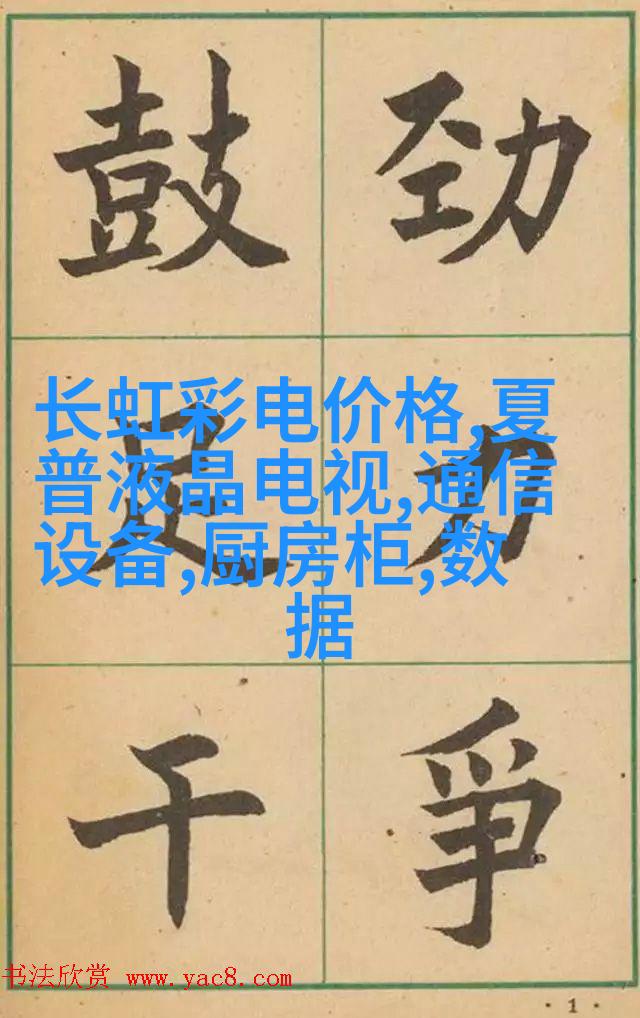 鼓足干
劲力爭
长虹彩电价格,夏
普液晶电视,通信
设备,厨房柜,数
据
书法欣赏 www.yac8.com
·1·